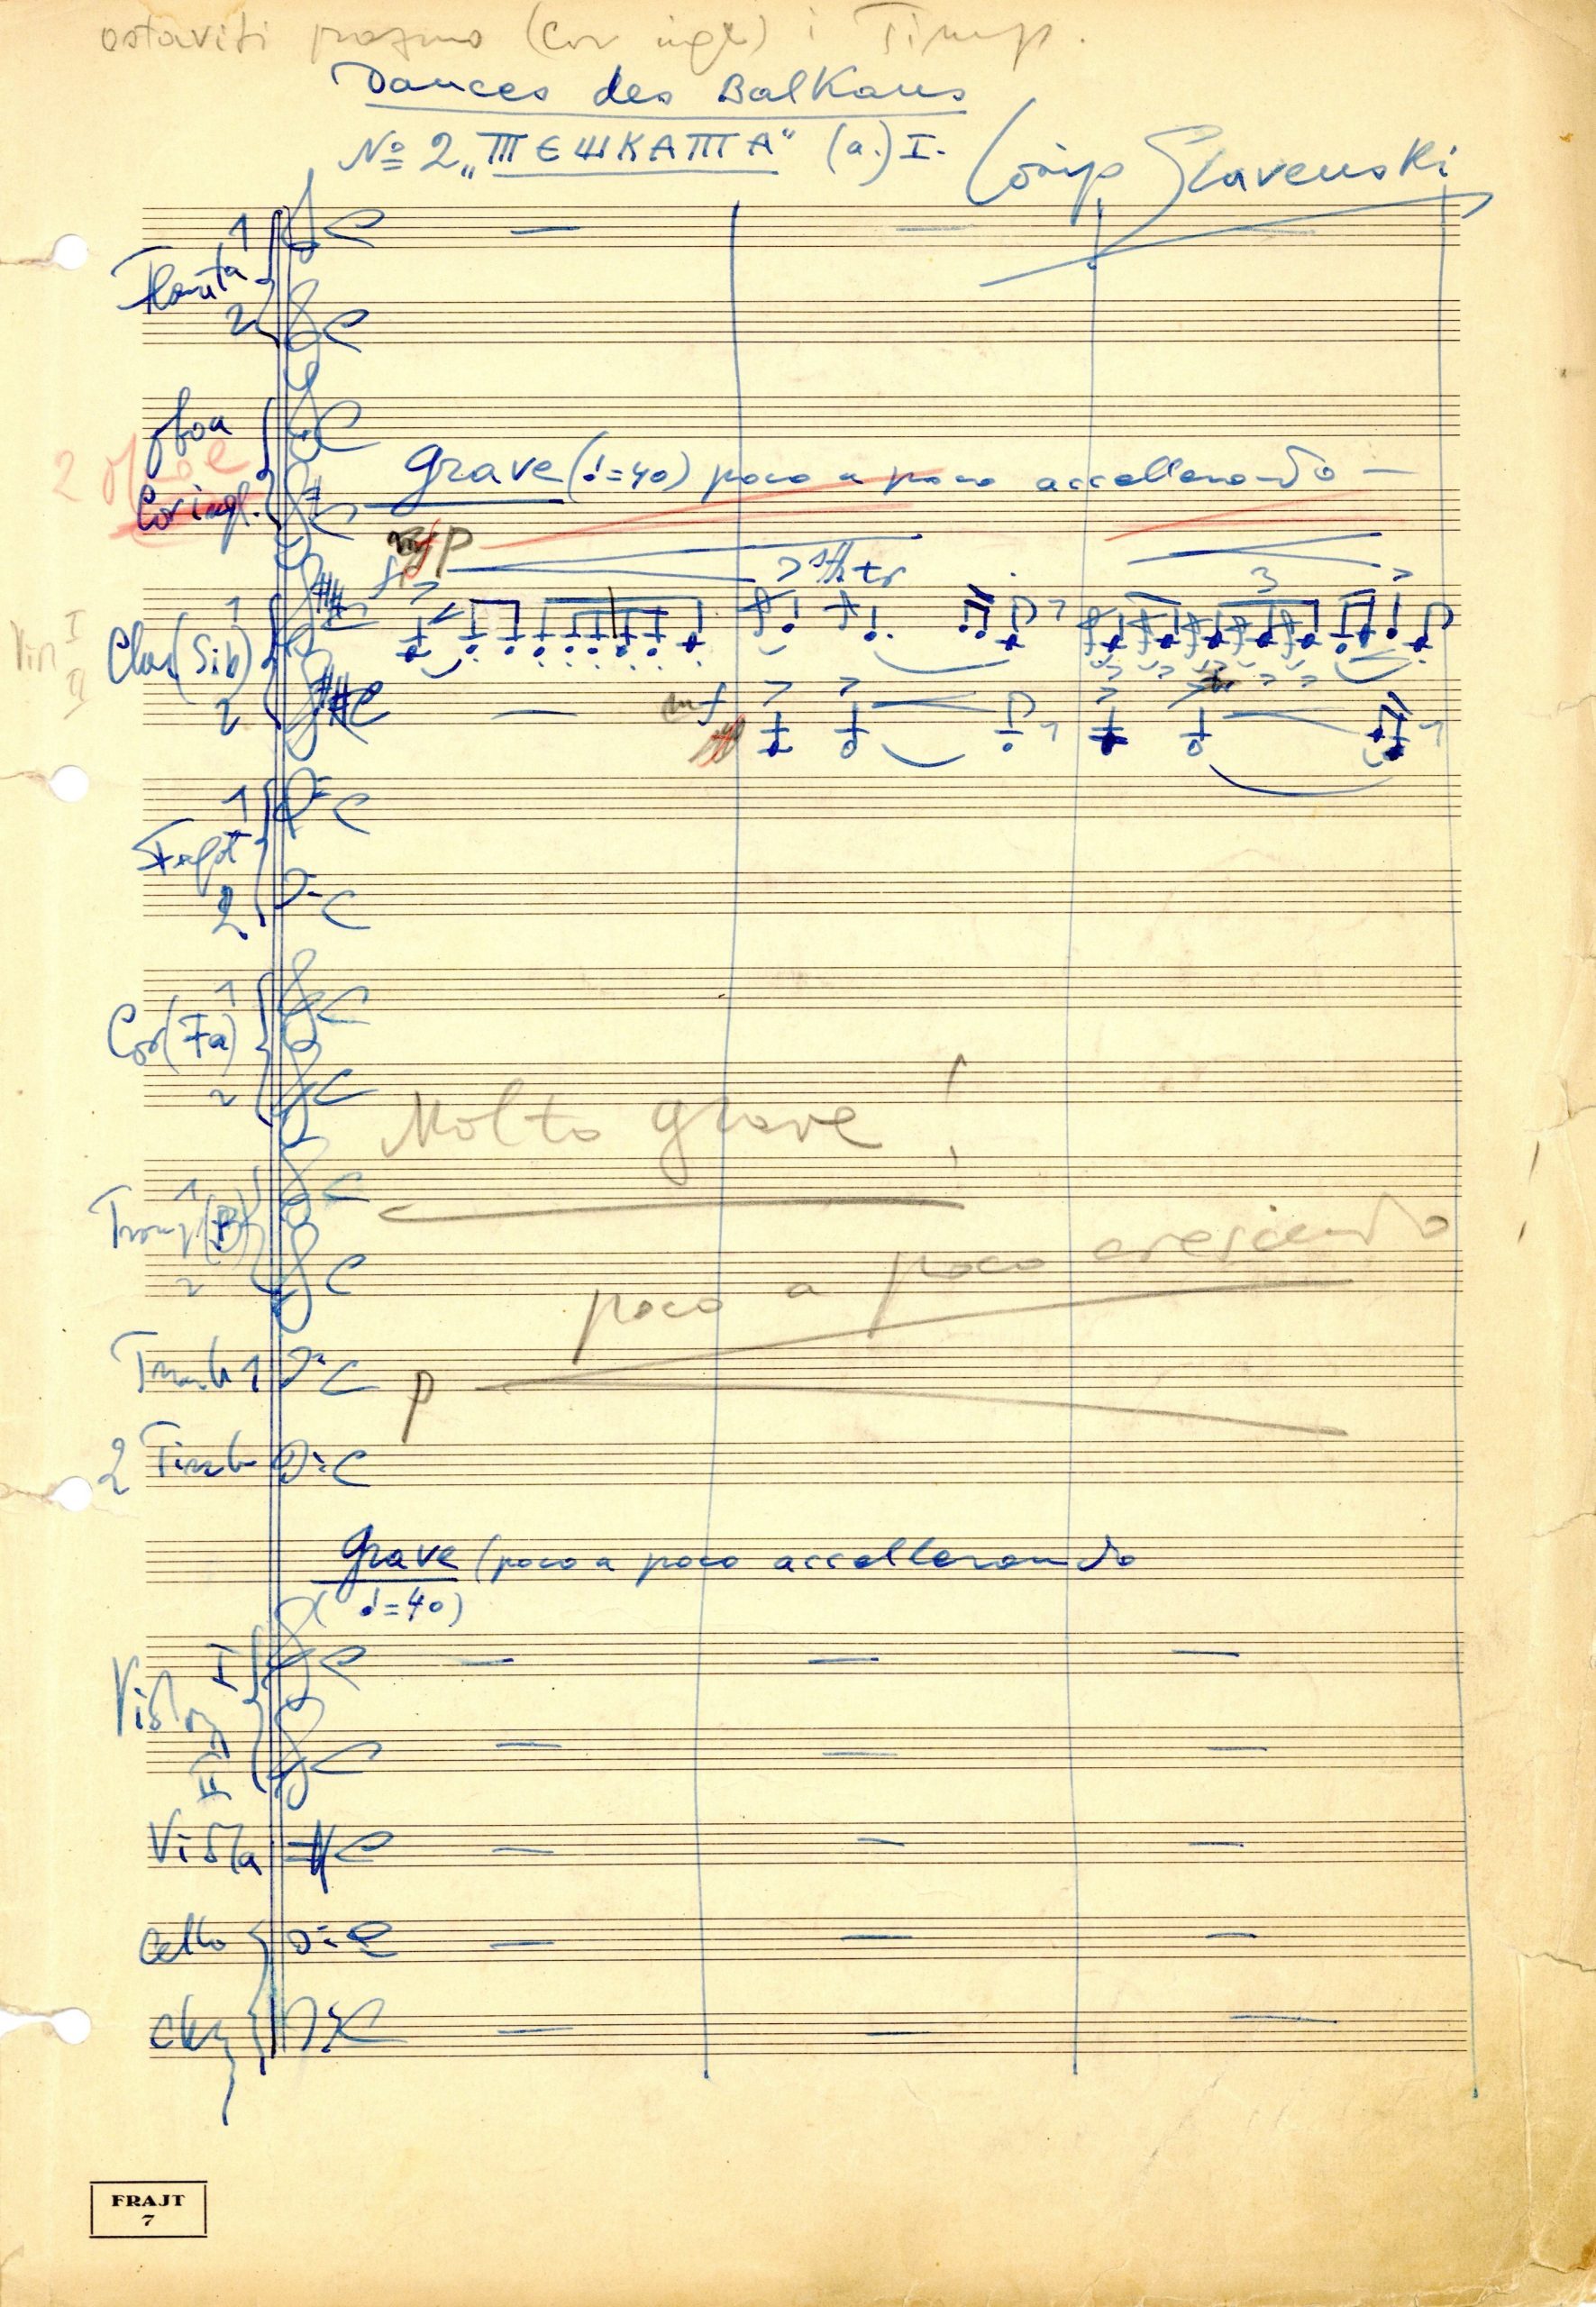 ostaviti prazno (Cor ingl) i Timp.
Dances des Balkans
№ 2 „ТЕШКАТА“ (a.) I. Josip Slavenski
1
Flauta
2
oboa
2 Oboe
Cor ingl.
Grave (♩=40) poco a poco accellerando
p
f
sf tr
3
Vln I
II
1
Clar (Sib)
2
mf
1
Fagot
2.
1
Cor (Fa)
2
Molto grave!
1
Tromp (B)
2
poco a poco crescendo
Tromb 1
p
2 Timb
Grave (poco a poco accellerando
(♩=40)
I
II
Viola
Cello
FRAJT
7